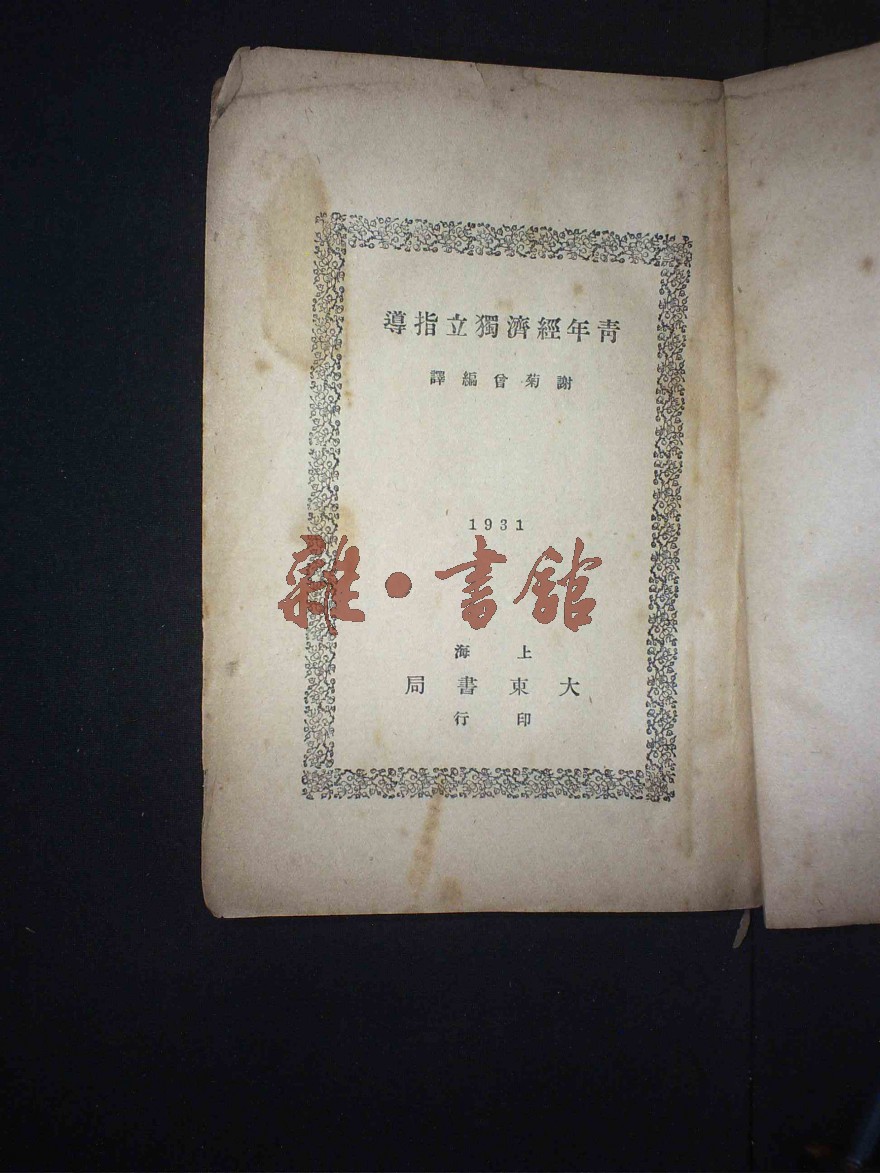 青年經濟獨立指導
謝菊曾編譯
1931
雜·書館
上海
大東書局
印行